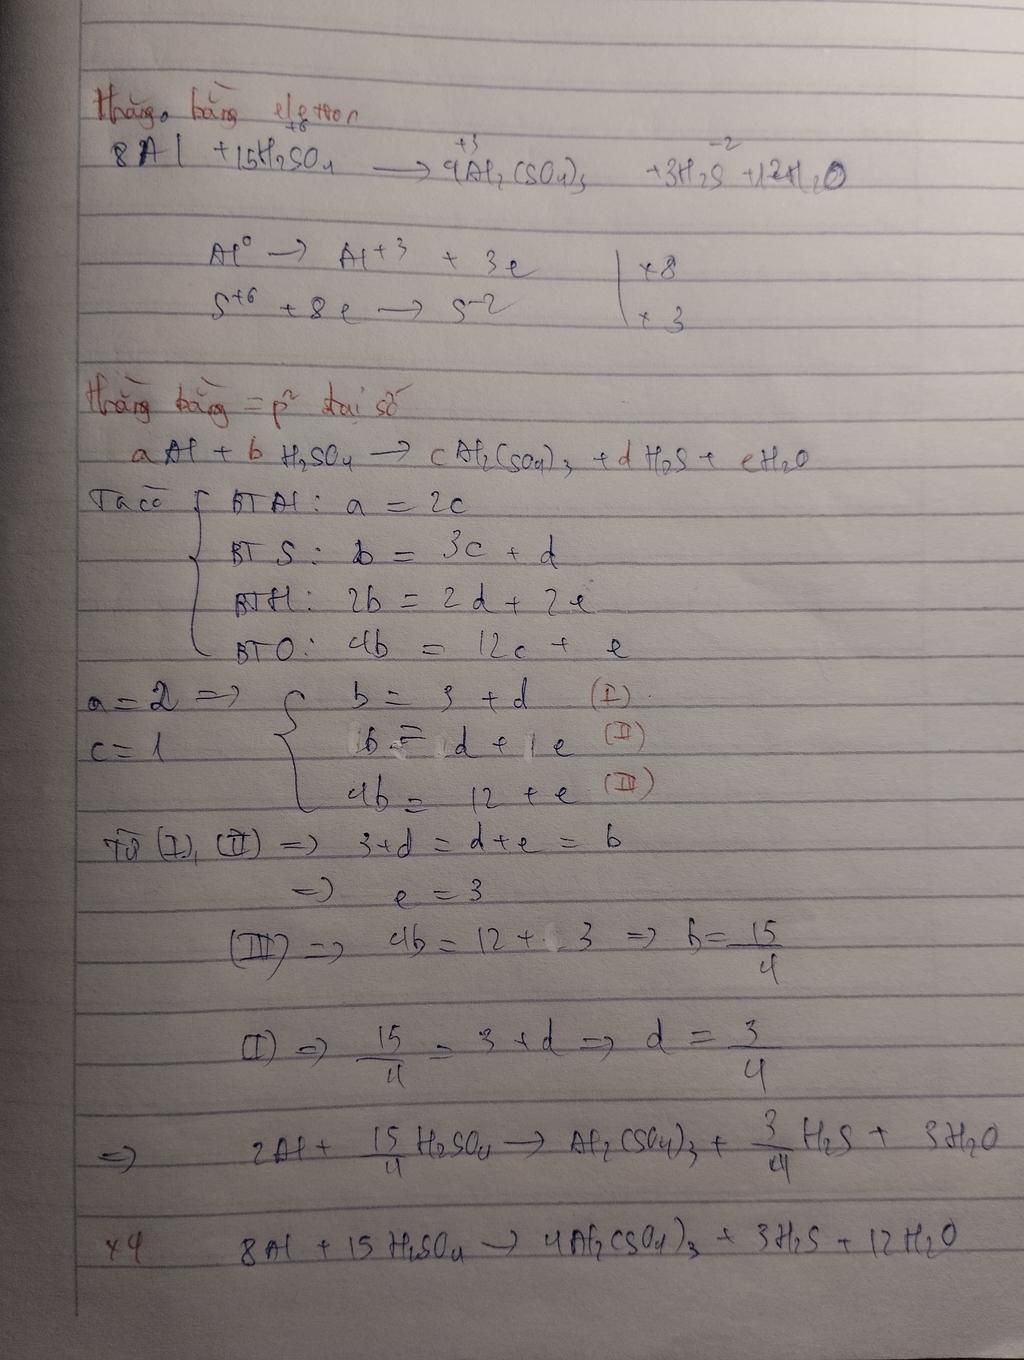 thăng bằng eletron
8Al + 15H₂S⁺⁶O₄ → 4Al⁺³₂(SO₄)₃ + 3H₂S⁻² + 12H₂O
Al⁰ → Al⁺³ + 3e | x 8
S⁺⁶ + 8e → S⁻² | x 3
thăng bằng = p² đại số
a Al + b H₂SO₄ → c Al₂(SO₄)₃ + d H₂S + e H₂O
Ta có { BT Al: a = 2c
BT S: b = 3c + d
BT H: 2b = 2d + 2e
BT O: 4b = 12c + e
a = 2 => { b = 3 + d (I)
c = 1 b = d + e (II)
4b = 12 + e (III)
Từ (I), (II) => 3+d = d+e = b
=> e = 3
(III) => 4b = 12 + 3 => b = 15/4
(I) => 15/4 = 3 + d => d = 3/4
=> 2Al + 15/4 H₂SO₄ → Al₂(SO₄)₃ + 3/4 H₂S + 3H₂O
x4 8Al + 15H₂SO₄ → 4Al₂(SO₄)₃ + 3H₂S + 12H₂O